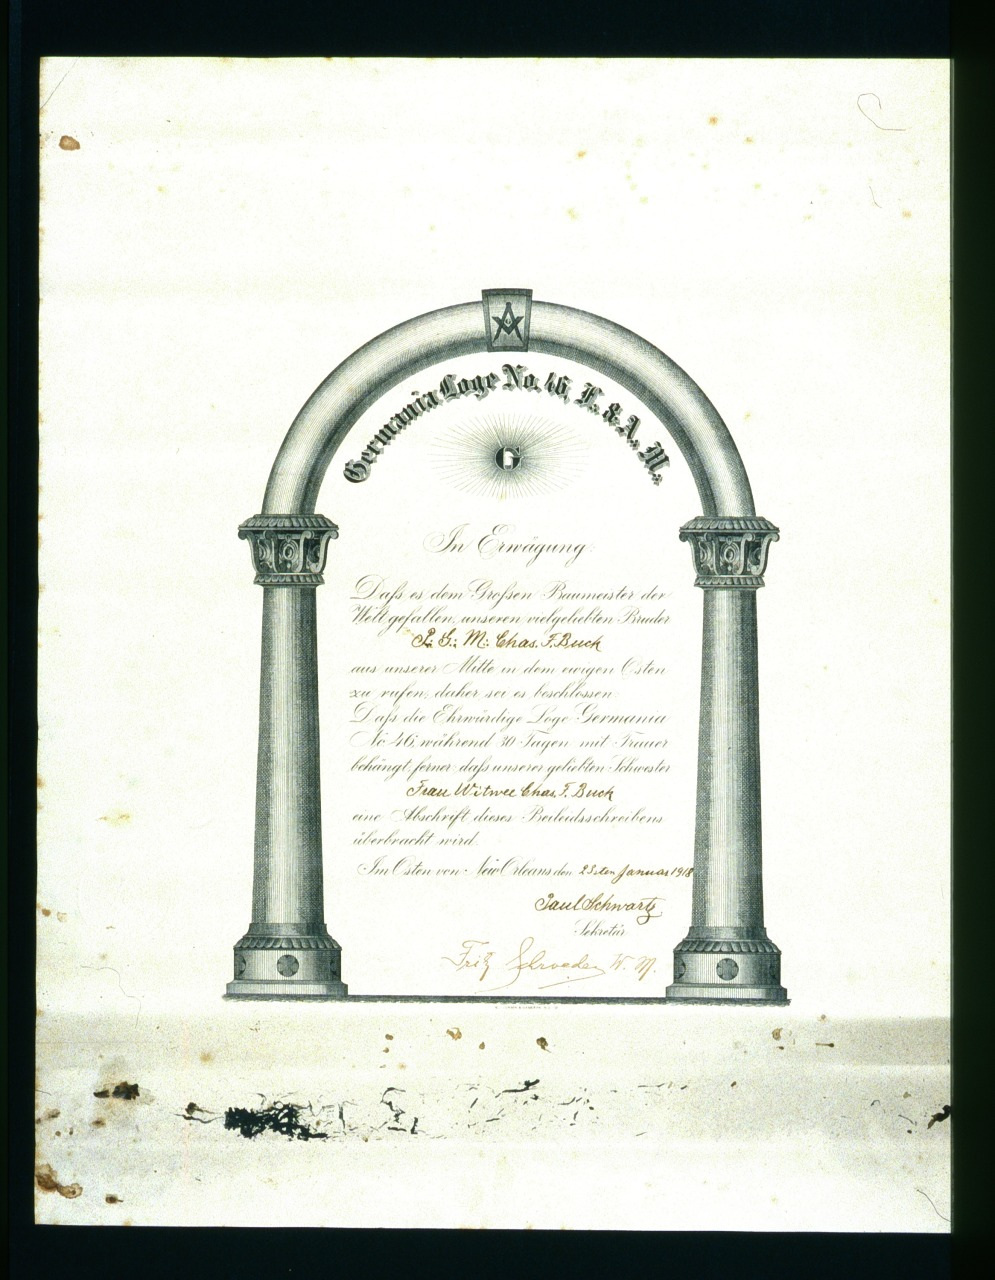 Germania Loge No. 46, F. & A. M.
G
In Erwägung:
Daß es dem Großen Baumeister der
Welt gefallen, unseren vielgeliebten Bruder
P. G. M. Chas. F. Buck
aus unserer Mitte in dem ewigen Osten
zu rufen; daher sei es beschlossen:
Daß die Ehrwürdige Loge Germania
No 46, während 30 Tagen mit Trauer
behängt, ferner, daß unserer geliebten Schwester
Frau Witwe Chas. F. Buck
eine Abschrift dieses Beileidsschreibens
überbracht wird.
Im Osten von New Orleans den 25sten Januar 1918
Paul Schwartz
Sekretär
Fritz Schroeder W. M.